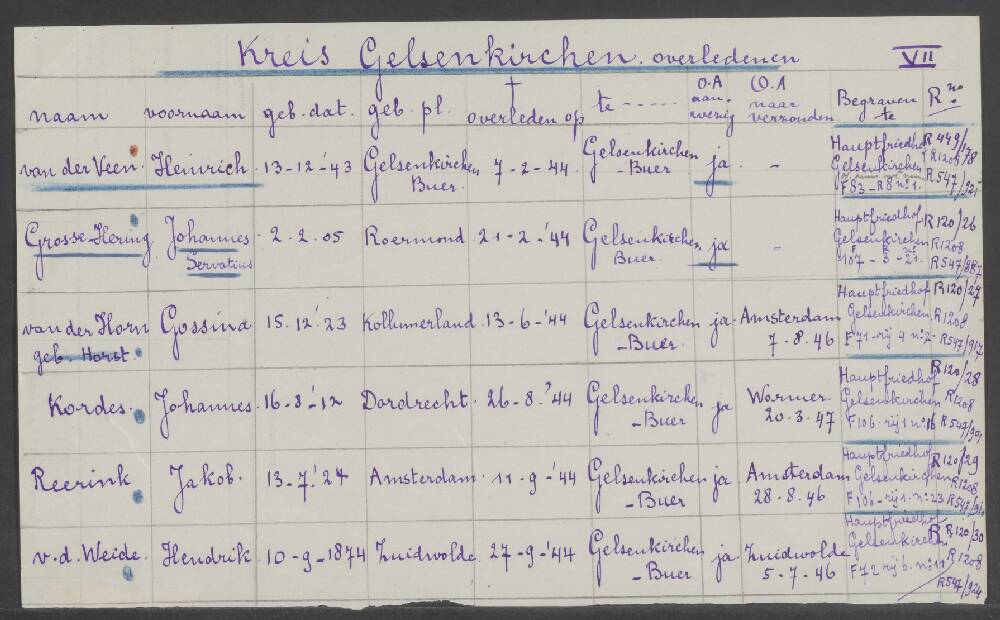 Kreis Gelsenkirchen. overledenen VII
naam voornaam geb. dat. geb. pl. † overleden op te ----- O.A aan-wezig O.A naar verzonden Begraven te R. no
van der Veen. Heinrich. 13-12-'43 Gelsenkirchen Buer. 7-2-44. Gelsenkirchen -Buer ja. - Hauptfriedhof Gelsenkirchen F83-R8 nº1. R449/178 R1208 R547/921
Grosse-Hering Johannes Servatius 2.2.05 Roermond. 21-2-'44 Gelsenkirchen Buer. ja - Hauptfriedhof Gelsenkirchen 107-3-21. R120/26 R1208 R547/887
van der Horn geb. Horst. Gossina 15.12.'23 Kollumerland. 13-6-'44 Gelsenkirchen -Buer. ja. Amsterdam 7-8.46 Hauptfriedhof Gelsenkirchen, F71-rij 4 nº2- R120/27 R1208 R547/917
Kordes. Johannes. 16-3-'12 Dordrecht. 26-8.?'44 Gelsenkirchen -Buer ja Wormer. 20.3.47 Hauptfriedhof Gelsenkirchen F106-rij1 nº16 R120/28 R1208 R547/901
Reerink Jakob. 13-7.'24 Amsterdam. 11-9-'44 Gelsenkirchen -Buer ja. Amsterdam 28-8.46 Hauptfriedhof Gelsenkirchen F106-rij1. nº23 R120/29 R1208
v.d. Weide. Hendrik 10-9-1874 Zuidwolde. 27-9-'44 Gelsenkirchen -Buer ja. Zuidwolde 5-7.46 Hauptfriedhof Gelsenkirchen F72 rij 6. nº11 R120/30 R1208 R547/924